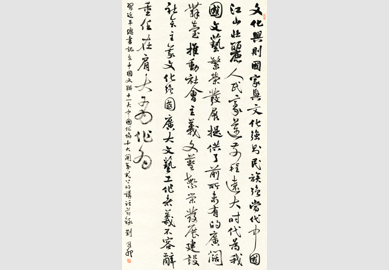 文化興則國家興文化強則民族強當代中國
江山壯麗人民豪邁前程遠大時代為我
國文藝繁榮發展提供了前所未有的廣闊
舞臺推動社會主義文藝繁榮發展建設
社會主義文化強國廣大文藝工作者義不容辭
重任在肩大有作為
習近平總書記在中國文聯十一大中國作協十大開幕式上的講話節錄 劉